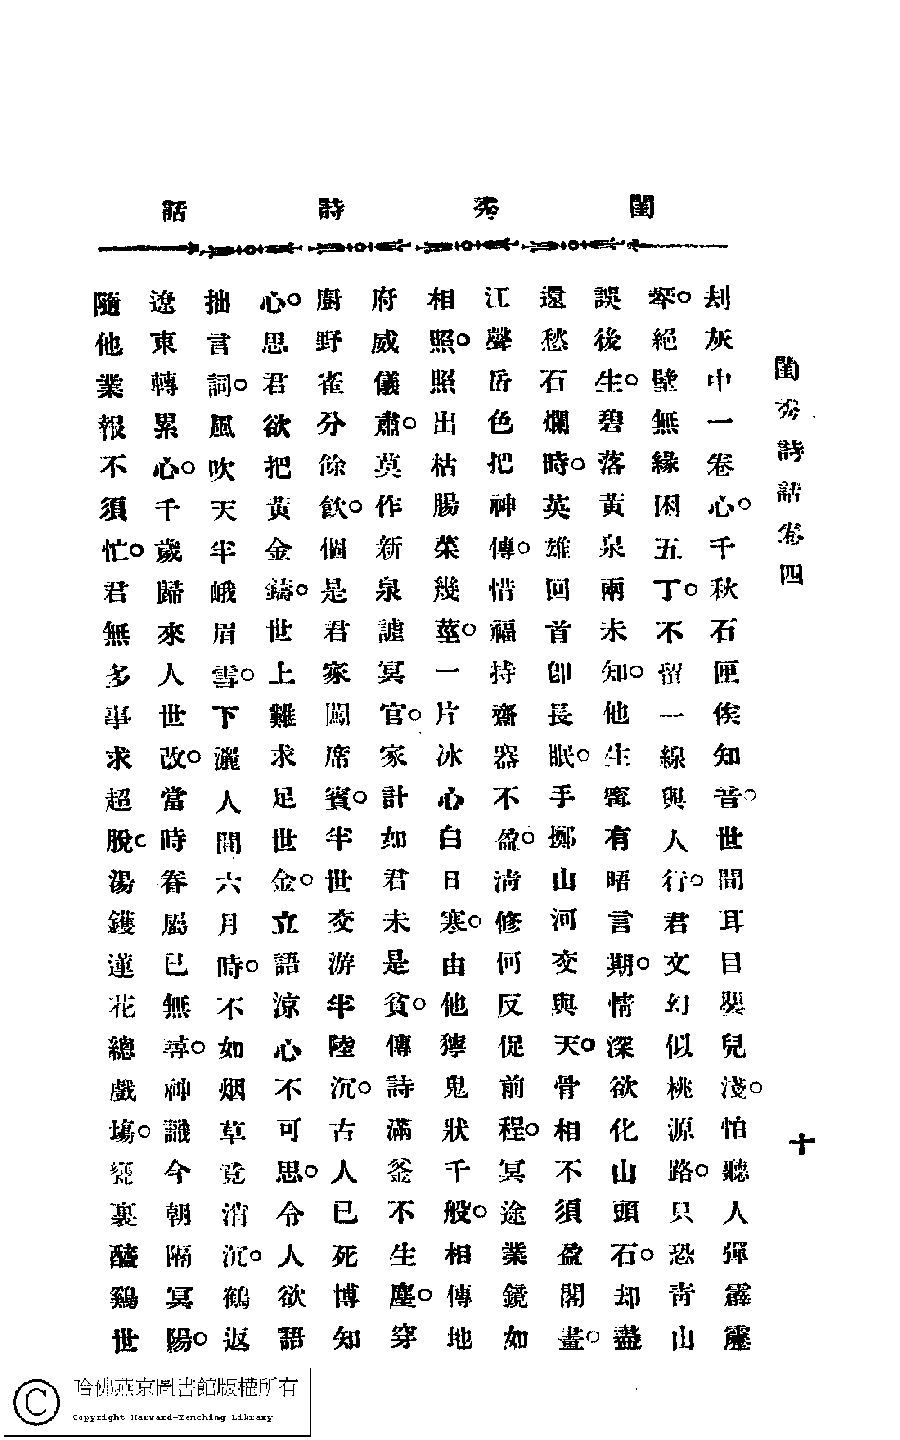 閨秀詩話
閨秀詩話卷四
十
刦灰中一卷心。千秋石匣俟知音。世間耳目嬰兒淺。怕聽人彈霹靂
琴。絕壁無緣困五丁。不留一線與人行。君文幻似桃源路。只恐靑山
誤後生。碧落黃泉兩未知。他生寗有晤言期。情深欲化山頭石。却盡
還愁石爛時。英雄回首卽長眠。手擲山河交與天。骨相不須盈閣畫。
江聲岳色把神傳。惜福持齋器不盈。淸修何反促前程。冥途業鏡如
相照。照出枯腸菜幾莖。一片冰心白日寒。由他獰鬼狀千般。相傳地
府威儀肅。莫作新泉謔冥官。家計如君未是貧。傳詩滿釜不生塵。穿
廚野雀分餘飮。個是君家闖席賓。半世交游半陸沉。古人已死博知
心。思君欲把黃金鑄。世上難求足世金。立語涼心不可思。令人欲語
拙言詞。風吹天半峨眉雪。下灑人間六月時。不如烟草竟消沉。鶴返
遼東轉累心。千歲歸來人世改。當時眷屬已無尋。神識今朝隔冥陽。
隨他業報不須忙。君無多事求超脫。湯鑊蓮花總戲場。甕裏醯鷄世
哈佛燕京圖書館版權所有
Copyright Harvard-Yenching Library